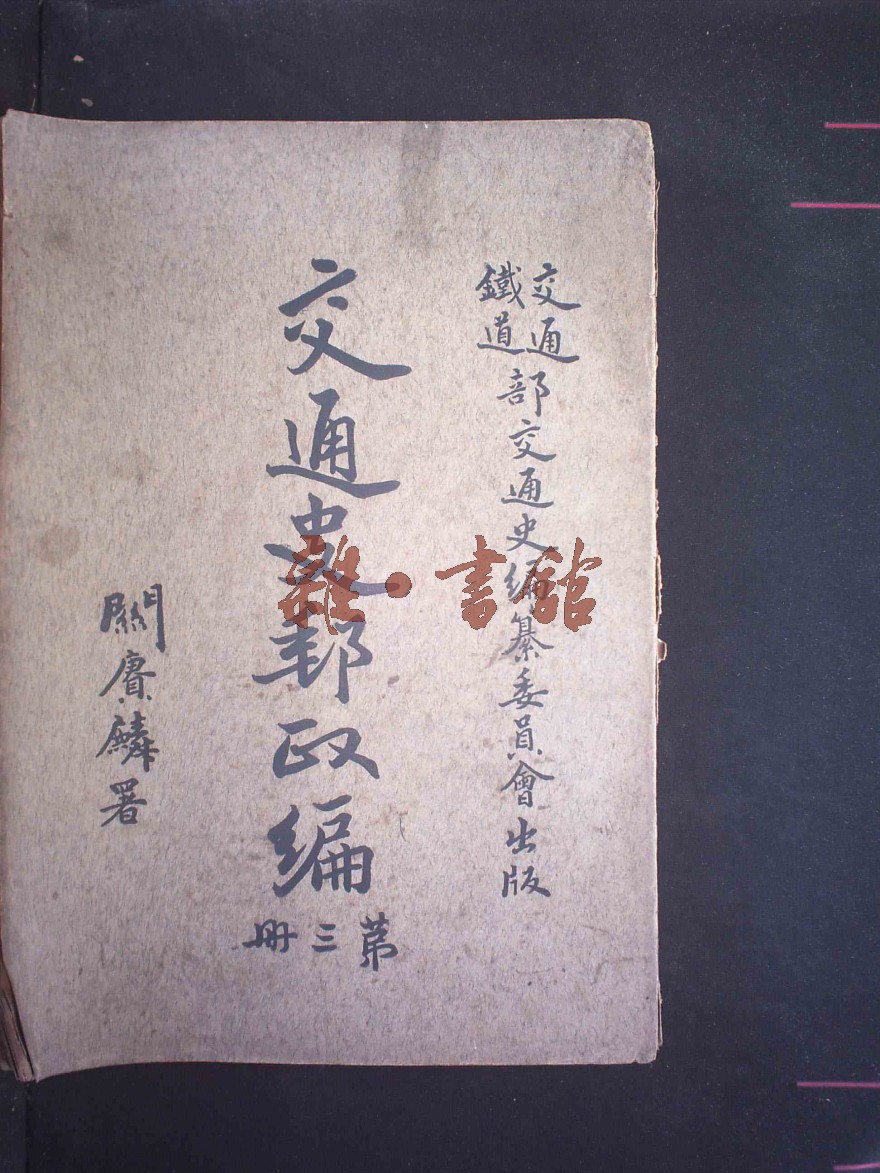 交通
鐵道
部交通史編纂委員會出版
交通史郵政編
第三冊
關賡麟署
雜·書館